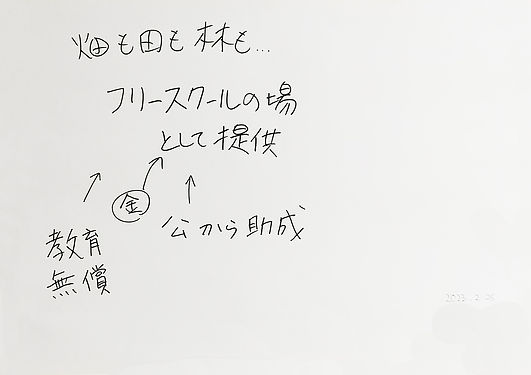 畑も田も林も...
フリースクールの場
として提供
金
公から助成
教育
無償